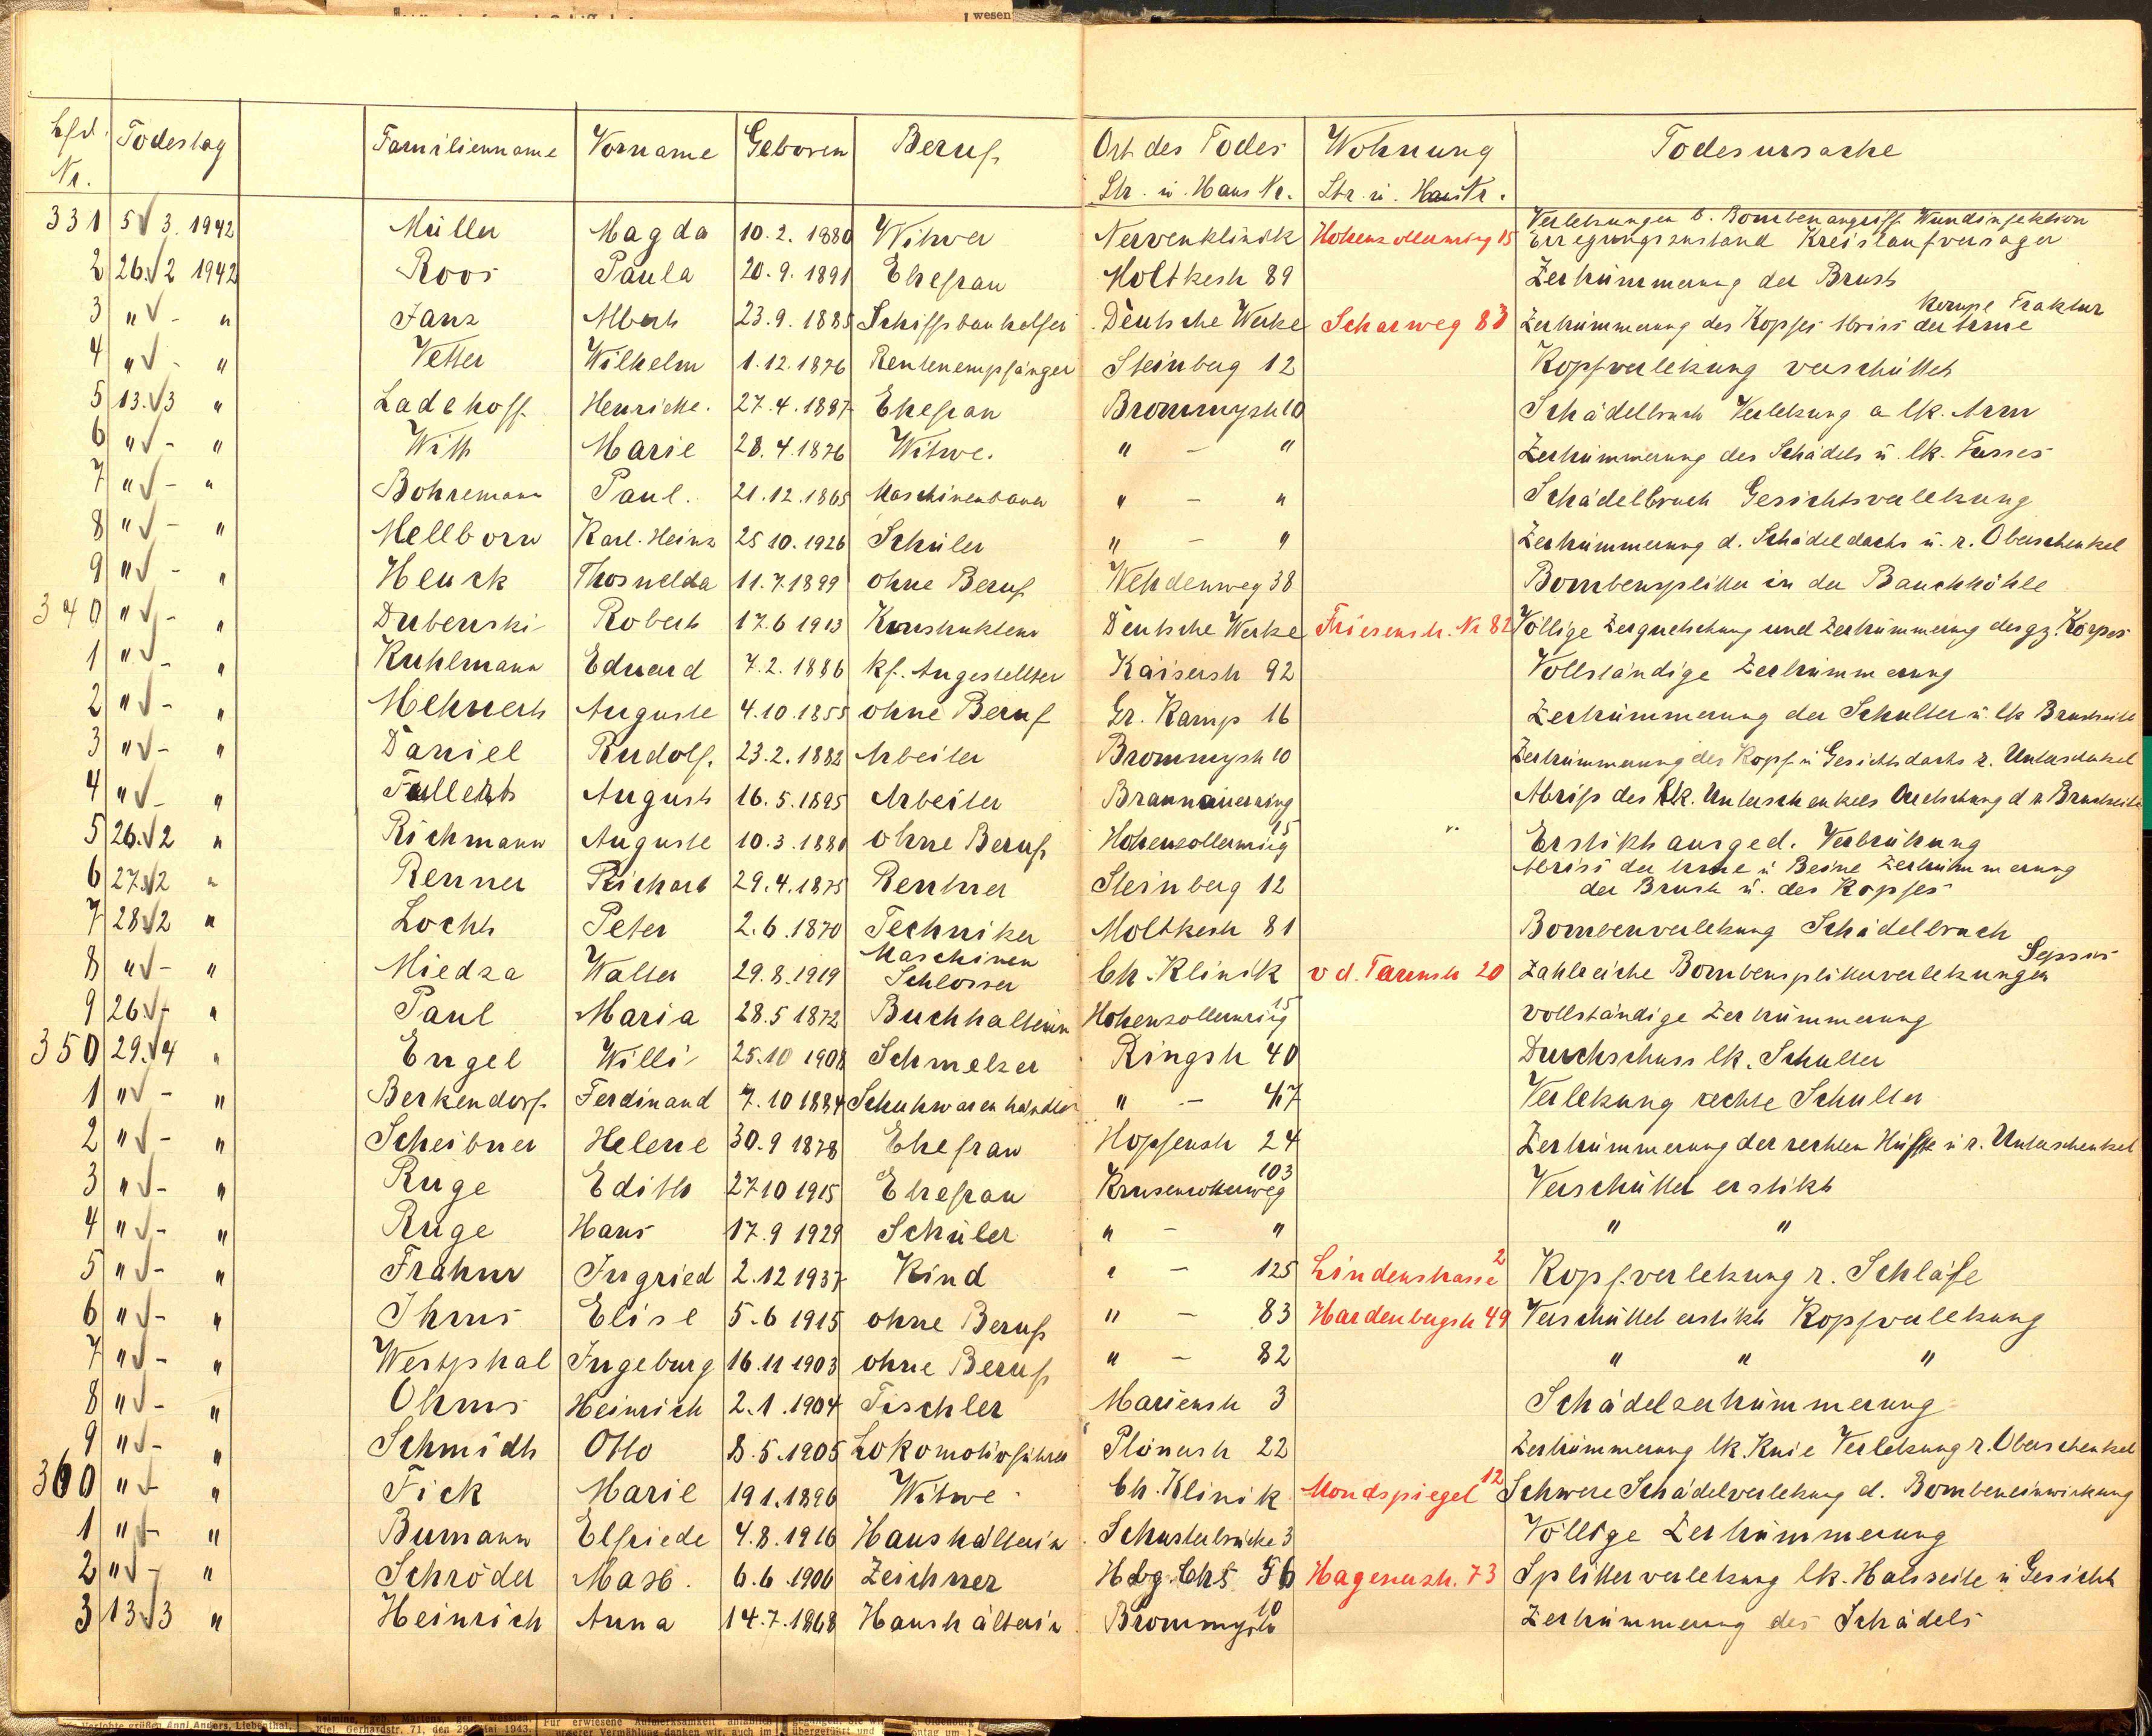 wesen
Lfd. Nr. Todestag Familienname Vorname Geboren Beruf Ort des Todes Str. u. Haus Nr. Wohnung Str. u. Haus Nr. Todesursache
331 5 3. 1942 Müller Magda 10.2.1880 Witwe Nervenklinik Hohenzollernring 15 Verletzungen b. Bombenangriff Wundinfektion Erregungszustand Kreislaufversager
2 26. 2 1942 Roos Paula 20.9.1891 Ehefrau Moltkestr 89 Zertrümmerung der Brust
3 " - " Janz Albert 23.9.1885 Schiffbauhelfer Deutsche Werke Scharweg 83 Zertrümmerung des Kopfes Abriss der Arme
4 " - " Vetter Wilhelm 1.12.1876 Rentenempfänger Steinberg 12 Kopfverletzung verschüttet
5 13. 3 " Ladehoff Henriette. 27.4.1887 Ehefrau Brommystr 10 Schädelbruch Verletzung a lk. Arm
6 " - " Witt Marie 28.4.1876 Witwe. " - " Zertrümmerung des Schädels u. lk. Fusses
7 " - " Bohremann Paul. 21.12.1865 Maschinenbauer " - " Schädelbruch Gesichtsverletzung
8 " - " Mellborn Karl-Heinz 25 10.1926 Schüler " - " Zertrümmerung d. Schädeldachs u. r. Oberschenkel
9 " - " Heuck Thosnelda 11.7.1899 ohne Beruf Wehdenweg 38 Bombensplitter in der Bauchhöhle
340 " - " Dubenski Robert 17.6 1913 Konstrukteur Deutsche Werke Friesenstr. Nr 82 Völlige Zerquetschung und Zertrümmerung des gz. Körpers
1 " - " Kuhlmann Eduard 7.2.1886 kf. Angestellter Kaiserstr 92 Vollständige Zertrümmerung
2 " - " Mehnert Auguste 4.10.1855 ohne Beruf Gr. Kamp 16 Zertrümmerung der Schulter u. lk Brustseite
3 " - " Daniel Rudolf. 23.2.1882 Arbeiter Brommystr 10 Zertrümmerung des Kopf u Gesichtsdachs r. Unterschenkel
4 " - " August 16.5.1895 Arbeiter Braunauerring Abriss des lk. Unterschenkels Quetschung d r Brustseite
5 26. 2 " Richmann Auguste 10.3.1880 ohne Beruf Hohenzollernring 15 Erstikt ausged. Verbrühung
6 27. 2 " Renner Richard 29.4.1875 Rentner Steinberg 12 Abriss der Arme u Beine Zertrümmerung der Brust u. des Kopfes
7 28. 2 " Locht Peter 2.6.1870 Techniker Moltkestr 81 Bombenverletzung Schädelbruch
8 " - " Miedza Walter 29.8.1919 Maschinen Schlosser Ch. Klinik v d. Tannstr 20 Zahlreiche Bombensplitterverletzungen Sepsis
9 26. - " Paul Maria 28.5 1872 Buchhalterin Hohenzollernring 15 vollständige Zertrümmerung
350 29. 4 " Engel Willi 25.10 1908 Schmelzer Ringstr 40 Durchschuss lk. Schulter
1 " - " Berkendorf Ferdinand 7.10 1884 Schuhwarenhändler " - 47 Verletzung rechte Schulter
2 " - " Scheibner Helene 30.9 1878 Ehefrau Hopfenstr 24 Zertrümmerung der rechten Hüfte u r. Unterschenkel
3 " - " Ruge Edith 27 10 1915 Ehefrau Krusenrotterweg 103 Verschüttet erstikt
4 " - " Ruge Hans 17.9 1929 Schüler " - " " "
5 " - " Frahm Ingried 2.12 1937 Kind " - 125 Lindenstrasse 2 Kopfverletzung r. Schläfe
6 " - " Ihms Elise 5.6 1915 ohne Beruf " - 83 Hardenbergstr 49 Verschüttet erstikt Kopfverletzung
7 " - " Westphal Ingeburg 16.11 1903 ohne Beruf " - 82 " " "
8 " - " Ohms Heinrich 2.1.1904 Tischler Marienstr 3 Schädelzertrümmerung
9 " - " Schmidt Otto 8.5.1905 Lokomotivführer Plönerstr 22 Zertrümmerung lk. Knie Verletzung r. Oberschenkel
360 " - " Fick Marie 19 1.1896 Witwe Ch. Klinik Mondspiegel 12 Schwere Schädelverletzung d. Bombeneinwirkung
1 " - " Bumann Elfriede 4.8.1916 Haushälterin Schusterbrücke 3 Völlige Zertrümmerung
2 " - " Schröder Max. 6.6.1906 Zeichner Hagenerstr. 73 Splitterverletzung lk. Halsseite u Gesicht
3 13 3 " Heinrich Anna 14.7.1868 Haushälterin Brommystr 10 Zertrümmerung des Schädels
Verlobte grüßen Anni Anders, Liebenthal,
Kiel, Gerhardstr. 71, den 29. Mai 1943.
Für erwiesene Aufmerksamkeit anläßlich
unserer Vermählung danken wir, auch im
übergeführt und